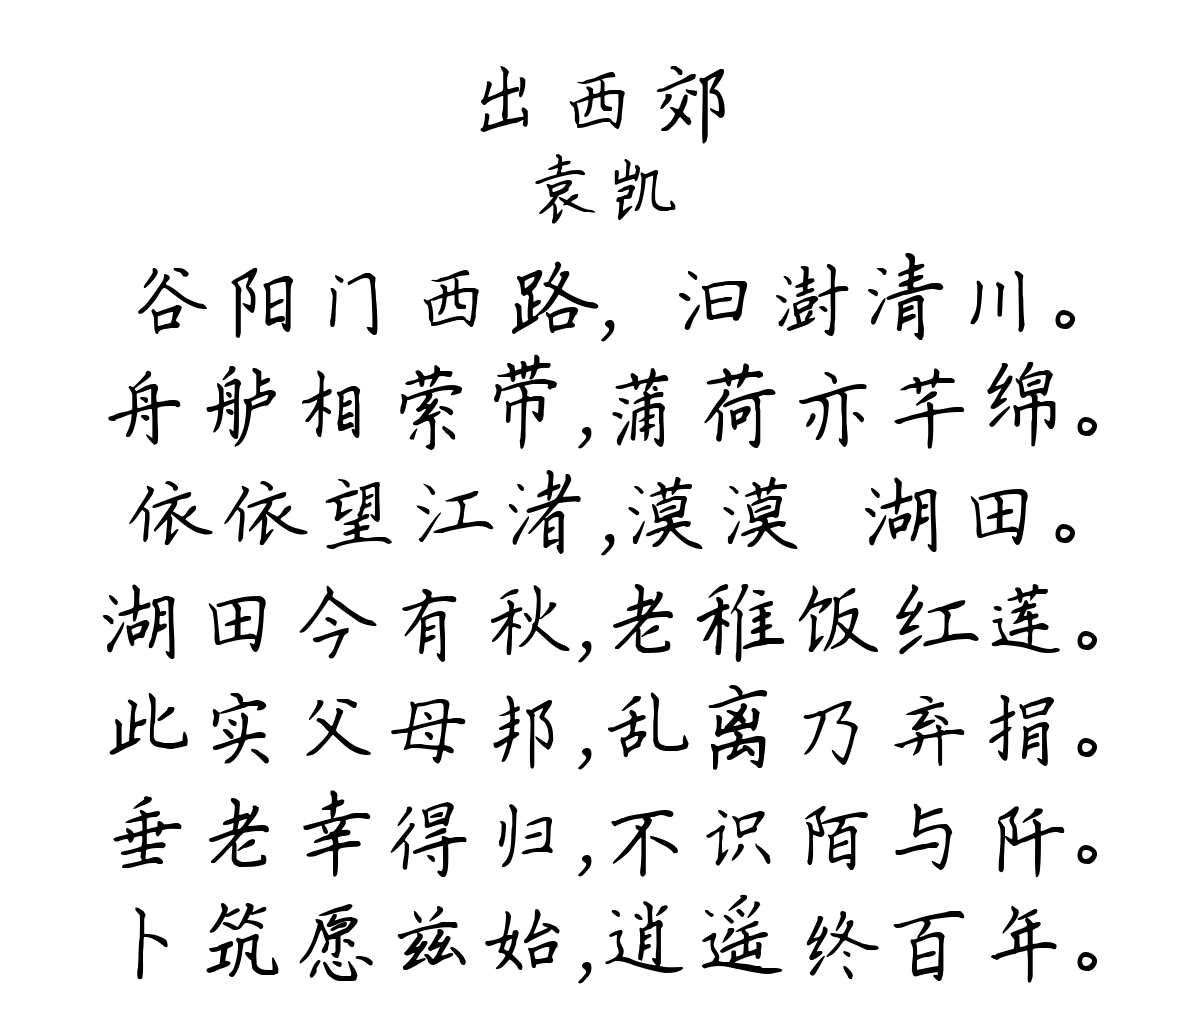 出西郊
袁凯
谷阳门西路,汩澍清川。
舟舻相萦带,蒲荷亦芊绵。
依依望江渚,漠漠 湖田。
湖田今有秋,老稚饭红莲。
此实父母邦,乱离乃弃捐。
垂老幸得归,不识陌与阡。
卜筑愿兹始,逍遥终百年。